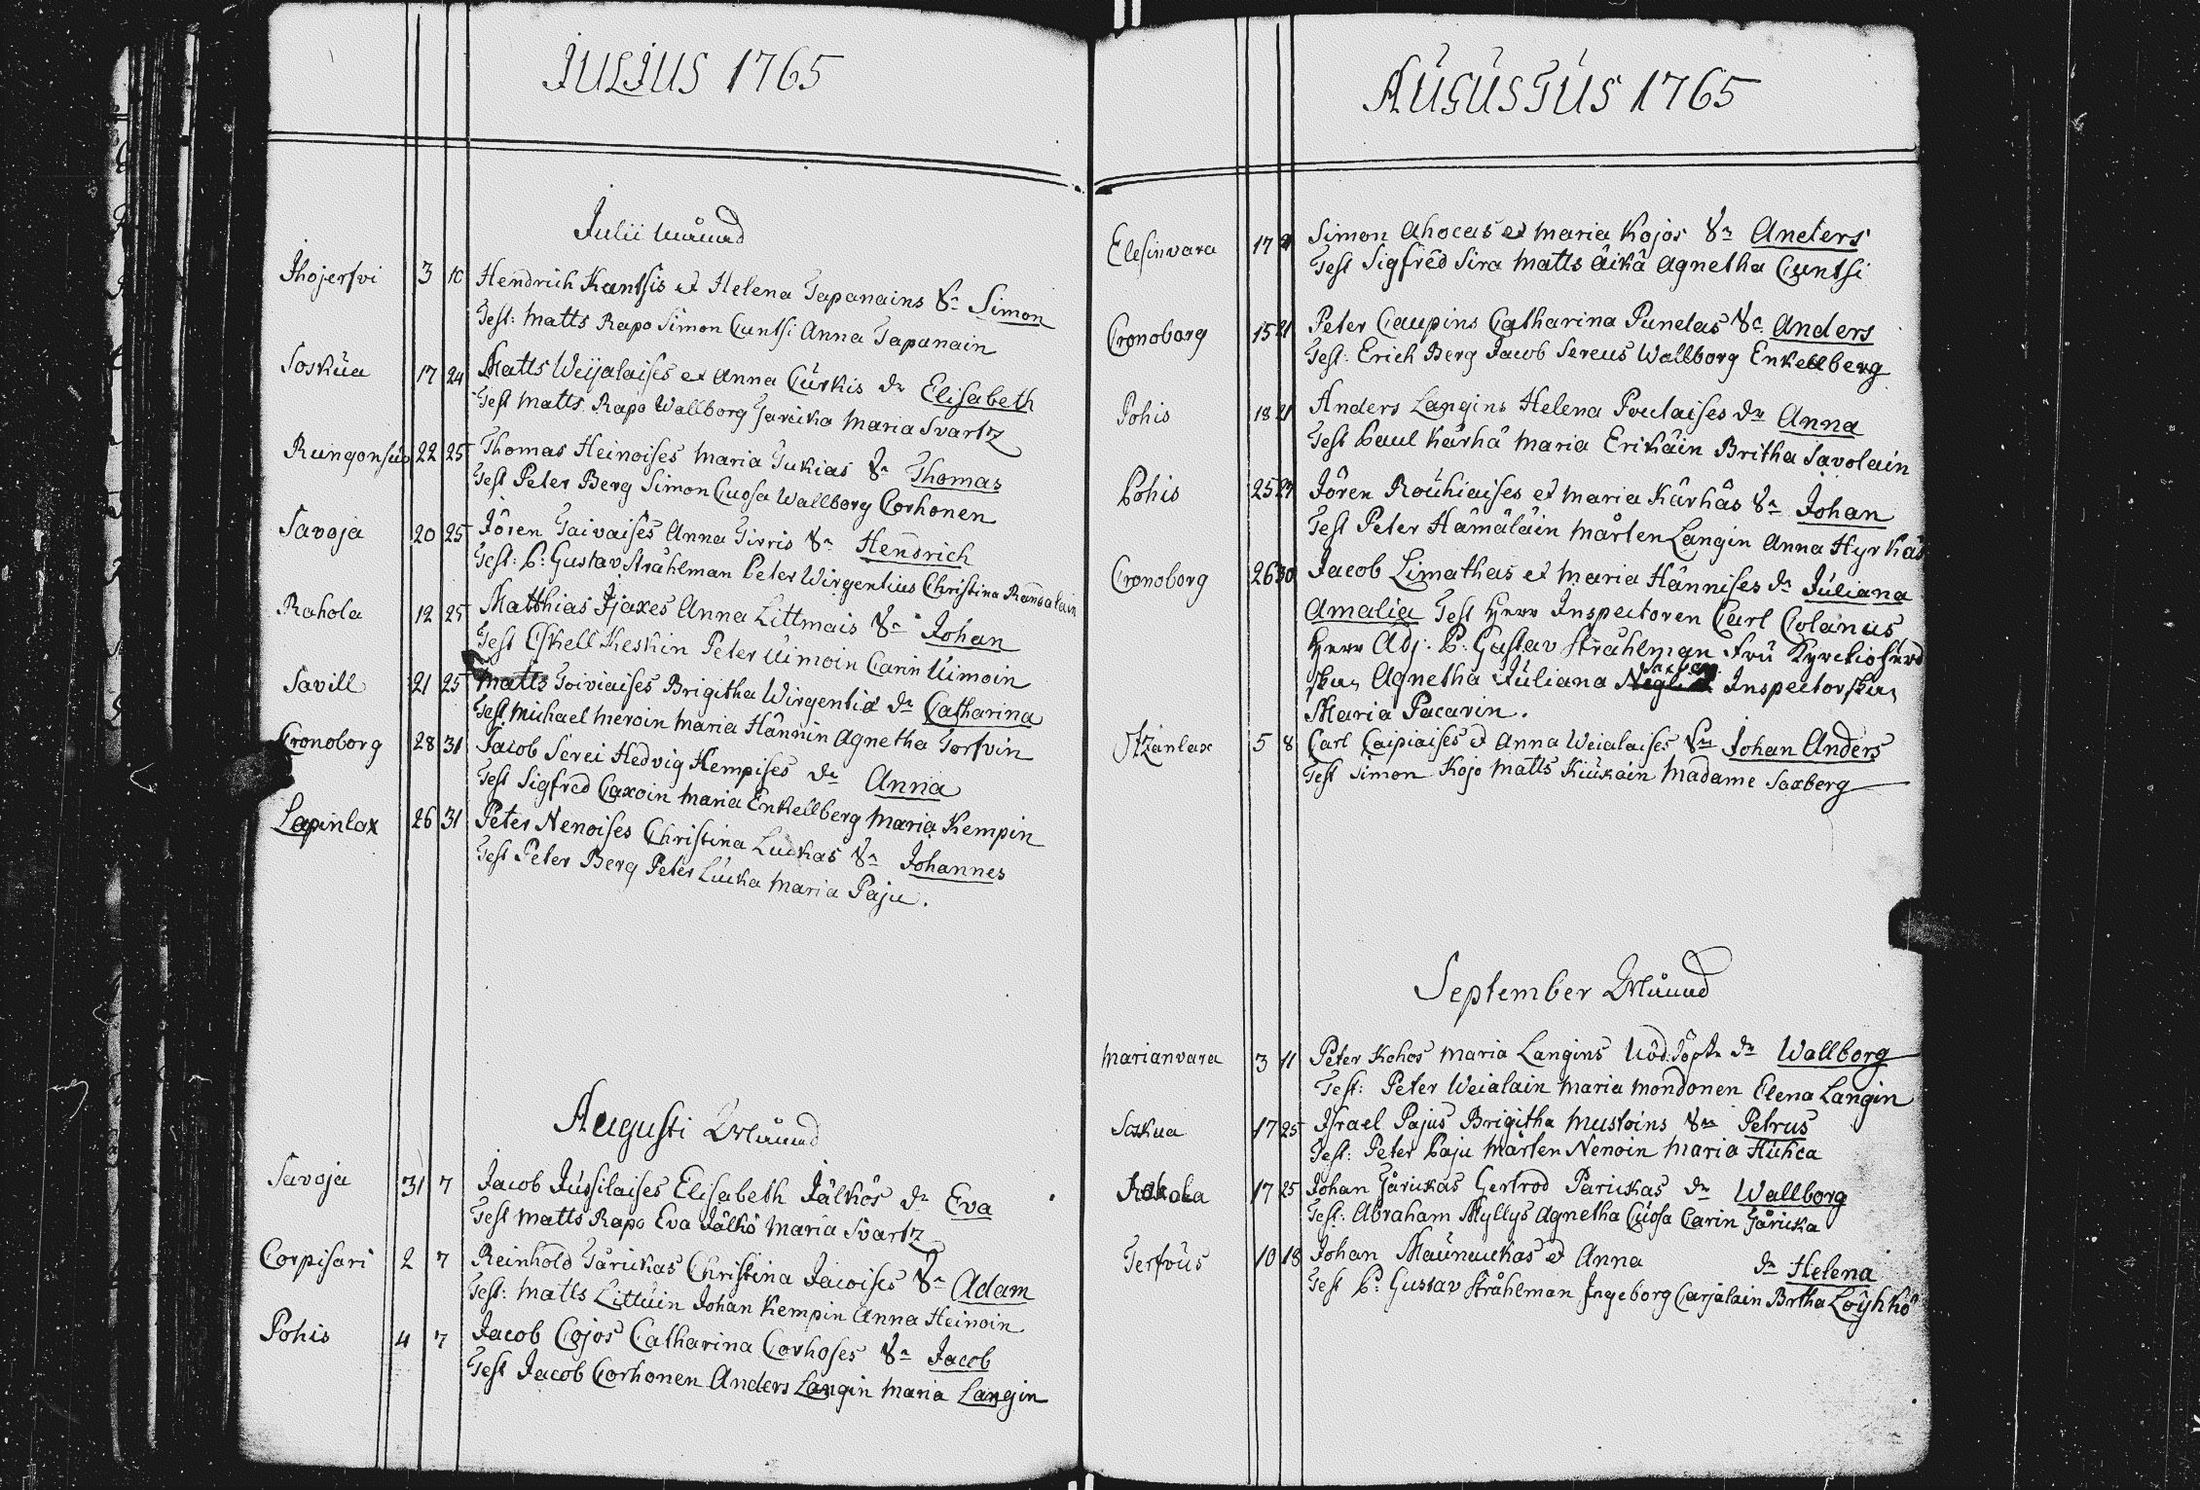 JULIUS 1765
Julii Månad
Jhojerfvi 3 10 Hendrich Kantsis et Helena Tapanains Sn Simon
Test: Matts Rapo Simon Cuntsi Anna Tapanain
Soskua 17 24 Matts Weijalaises et Anna Curkis dr Elisabeth
Test Matts Rapo Wallborg Jaricka Maria Svartz
22 25 Thomas Heinoises Maria Tukias Sn Thomas
Test Peter Berg Simon Cuosa Wallborg Corhonen
Savoja 20 25 Jören Taivaises Anna Tirris Sn Hendrich
Test: P: Gustav Stråhlman Peter Wirgentius Christina
Rahola 12 25 Matthias Jjaxes Anna Littmais Sn Johan
Test Eskell Keskin Peter Uimoin Carin Uimoin
Savill 21 25 Matts Toiviaises Brigitha Wirgentia dr Catharina
Test Michael Meroin Maria Hännin Agnetha Torfvin
Cronoborg 28 31 Jacob Serei Hedvig Hempises dr Anna
Test Sigfred Caxoin Maria Enkellberg Maria Kempin
Lapinlax 26 31 Peter Nenoises Christina Luckas Sn Johannes
Test Peter Berg Peter Lucka Maria Paju.
Augusti Månad
Savoja 31 7 Jacob Jussilaises Elisabeth Jälkös dr Eva
Test Matts Rapo Eva Jälkö Maria Svartz
Corpisari 2 7 Reinhold Tärickas Christina Jacoises Sn Adam
Test: Matts Littuin Johan Kempin Anna Heinoin
Pohis 4 7 Jacob Cojos Catharina Corhoses Sn Jacob
Test Jacob Corhonen Anders Langin Maria Langin
AUGUSTUS 1765
Elesinvara 17 21 Simon Ahocas et Maria Kojos Sn Anders
Test Sigfred Sira Matts Äikä Agnetha Cuntsi
Cronoborg 15 21 Peter Caupins Catharina Punelas Sn Anders
Test: Erich Berg Jacob Sereus Wallborg Enkellberg
Pohis 18 21 Anders Langins Helena Poulaises dr Anna
Test Paul Kärhä Maria Erikäin Britha Savolain
Pohis 25 27 Jören Rouhiaises et Maria Kärhäs Sn Johan
Test Peter Hämäläin Mårten Langin Anna Hyrkäs
Cronoborg 26 30 Jacob Limathas et Maria Hännises dr Juliana
Amalia Test Herr Inspectoren Carl Colanus
Herr Adj: P: Gustav Stråhlman Fru
Agnetha Juliana Inspectorskan
Maria Pacarin.
5 8 Carl Caipiaises et Anna Weialaises Sn Johan Anders
Test Simon Kojo Matts Kiukäin Madame Saxberg
September Månad
Marianvara 3 11 Peter Kohos Maria Langins Nöd.döpt dr Wallborg
Test: Peter Weialain Maria Mondonen Elena Langin
Soskua 17 25 Israel Pajus Brigitha Mustoins Sn Petrus
Test: Peter Paju Mårten Nenoin Maria Huhca
17 25 Johan Järickas Gertrod Parickas dr Wallborg
Test: Abraham Myllys Agnetha Cuosa Carin Järicka
Terfvus 10 18 Johan Maunuckas et Anna dr Helena
Test P: Gustav Stråhlman Ingeborg Carjalain Brtha Löyhkö